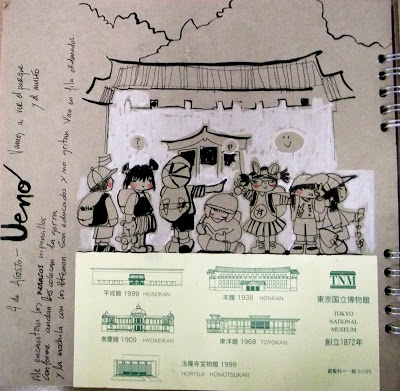 4 de Agosto -
Ueno
Vamos a ver el parque
y el museo
Me encantan los enanos uniformados
conforme cambia de colores la gorra
y la mochila con los Étamen Son educados y no gritan Van en fila ordenados
?
平成館 1999 HEISEIKAN
本館 1938 HONKAN
表慶館 1909 HYOKEIKAN
東洋館 1968 TOYOKAN
法隆寺宝物館 1999
HORYUJI HOMOTSUKAN
TNM
東京国立博物館
TOKYO
NATIONAL
MUSEUM
創立1872年